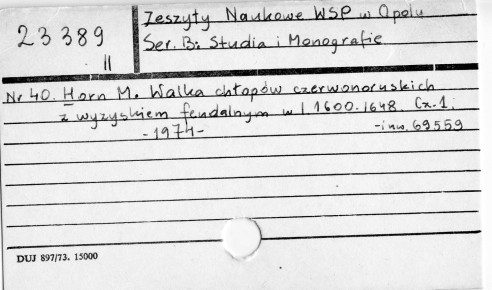 23389
II
Zeszyty Naukowe WSP w Opolu
Ser. B: Studia i Monografie
Nr 40. Horn M. Walka chłopów czerwonoruskich
z wyzyskiem feudalnym w l. 1600-1648. Cz. 1.
-1974-
-inw. 69559
DUJ 897/73. 15000